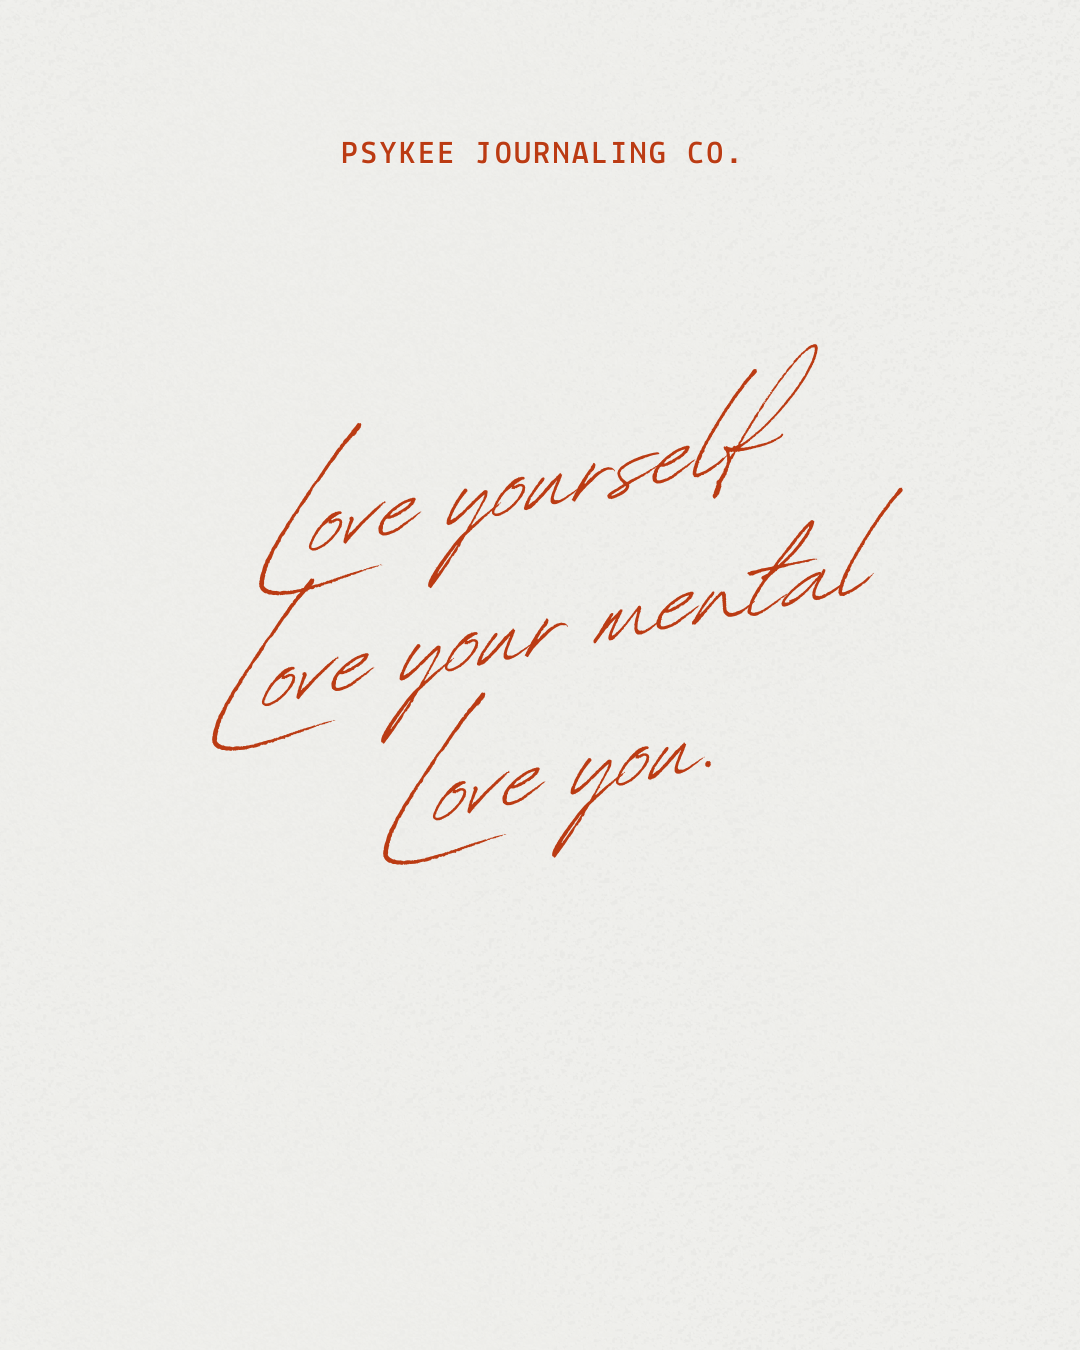 PSYKEE JOURNALING CO.
Love yourself
Love your mental
Love you.